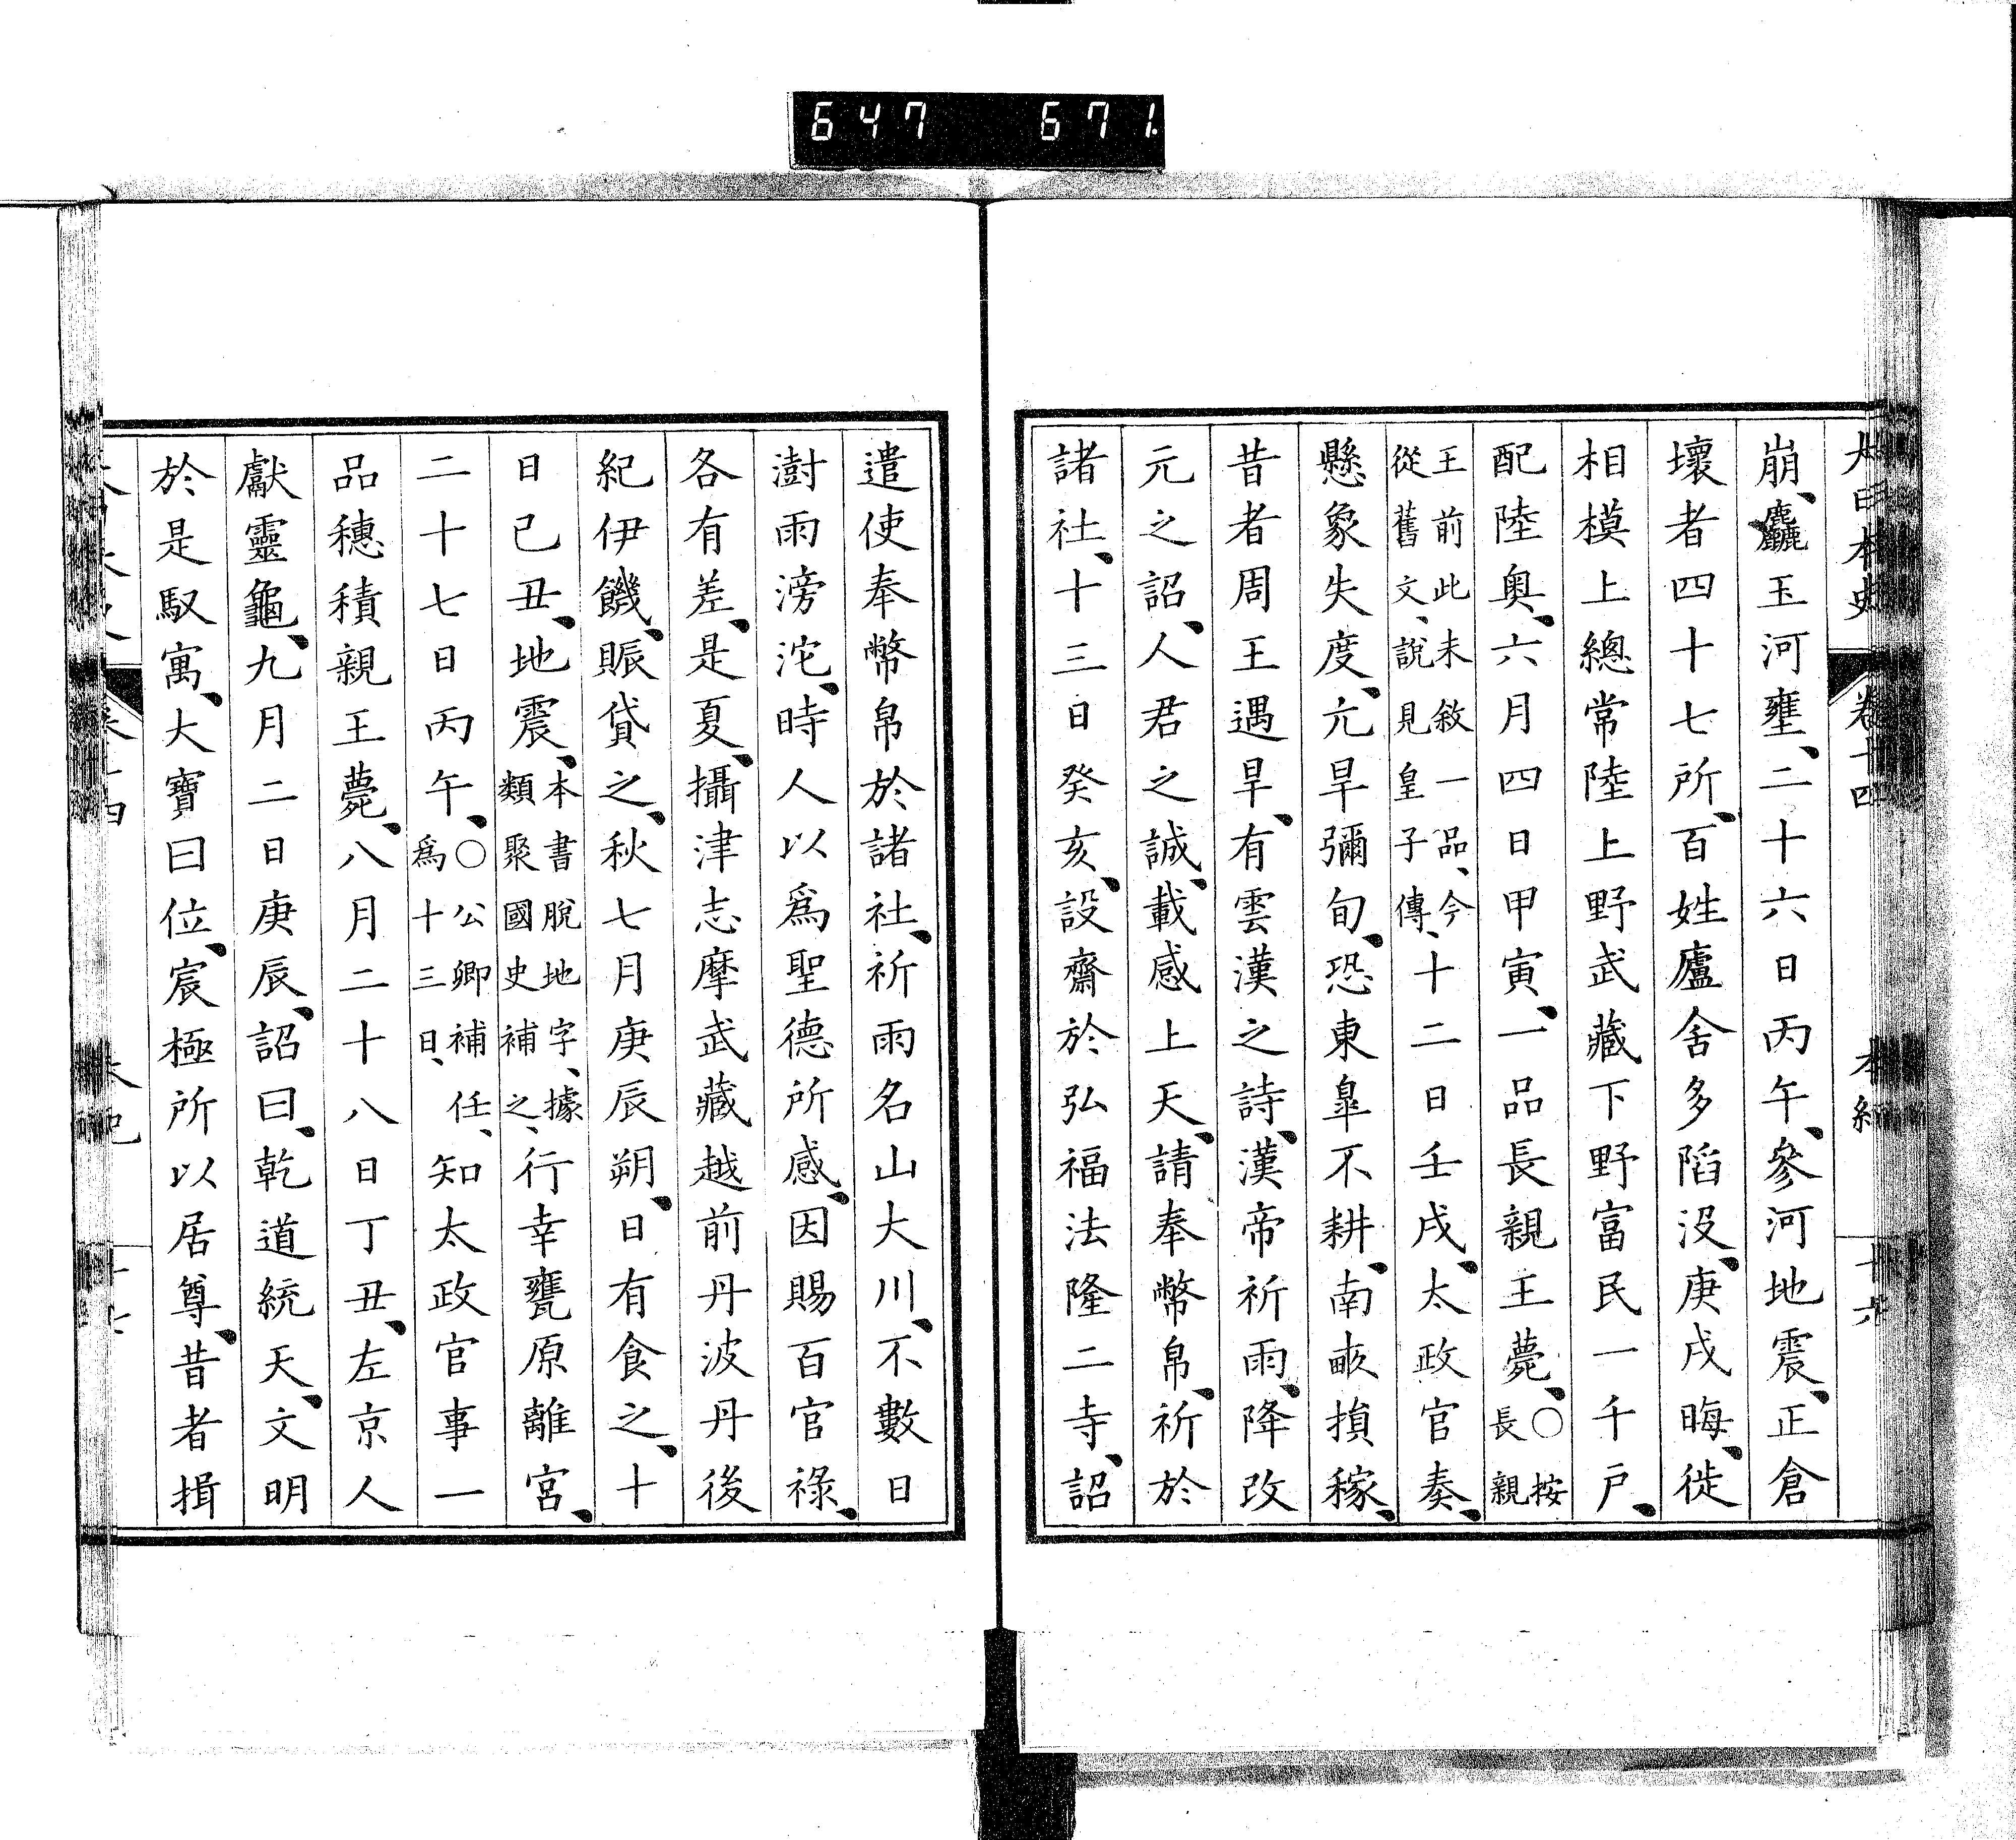 647 671
大日本史 卷十四 本紀 十六
崩、麤玉河壅、二十六日丙午、參河地震、正倉
壞者四十七所、百姓廬舍多陷沒、庚戌晦、徙
相模上總常陸上野武藏下野富民一千戶、
配陸奧、六月四日甲寅、一品長親王薨、○按長親
王前此未敘一品、今從舊文、說見皇子傳、十二日壬戌、太政官奏、
懸象失度、亢旱彌旬、恐東皐不耕、南畝損稼、
昔者周王遇旱、有雲漢之詩、漢帝祈雨、降改
元之詔、人君之誠、載感上天、請奉幣帛、祈於
諸社、十三日癸亥、設齋於弘福法隆二寺、詔
遣使奉幣帛於諸社、祈雨名山大川、不數日
澍雨滂沱、時人以爲聖德所感、因賜百官祿、
各有差、是夏、攝津志摩武藏越前丹波丹後
紀伊饑、賑貸之、秋七月庚辰朔、日有食之、十
日己丑、地震、本書脫地字、據類聚國史補之、行幸甕原離宮、
二十七日丙午、○公卿補任、爲十三日、知太政官事一
品穗積親王薨、八月二十八日丁丑、左京人
獻靈龜、九月二日庚辰、詔曰、乾道統天、文明
於是馭寓、大寶曰位、宸極所以居尊、昔者揖